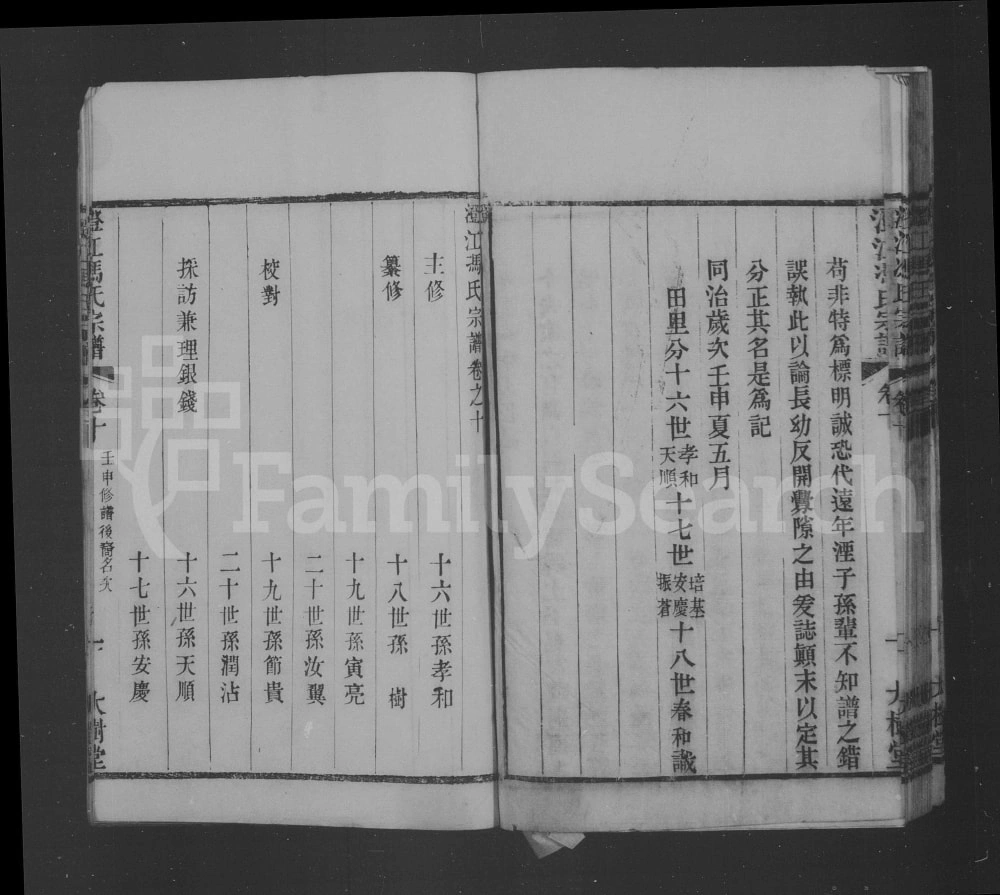 苟非特爲標明誠恐代遠年湮子孫輩不知譜之錯
誤執此以論長幼反開釁隙之由爰誌顛末以定其
分正其名是爲記
同治歲次壬申夏五月
田里分十六世孝和天順十七世培基安慶振蒼十八世春和識
澄江馮氏宗譜卷之十
主修 十六世孫孝和
纂修 十八世孫 樹
十九世孫寅亮
二十世孫汝翼
校對 十九世孫節貴
二十世孫潤沾
採訪兼理銀錢 十六世孫天順
十七世孫安慶
澄江馮氏宗譜 卷十 壬申修譜後裔名次 一 大樹堂
FamilySearch